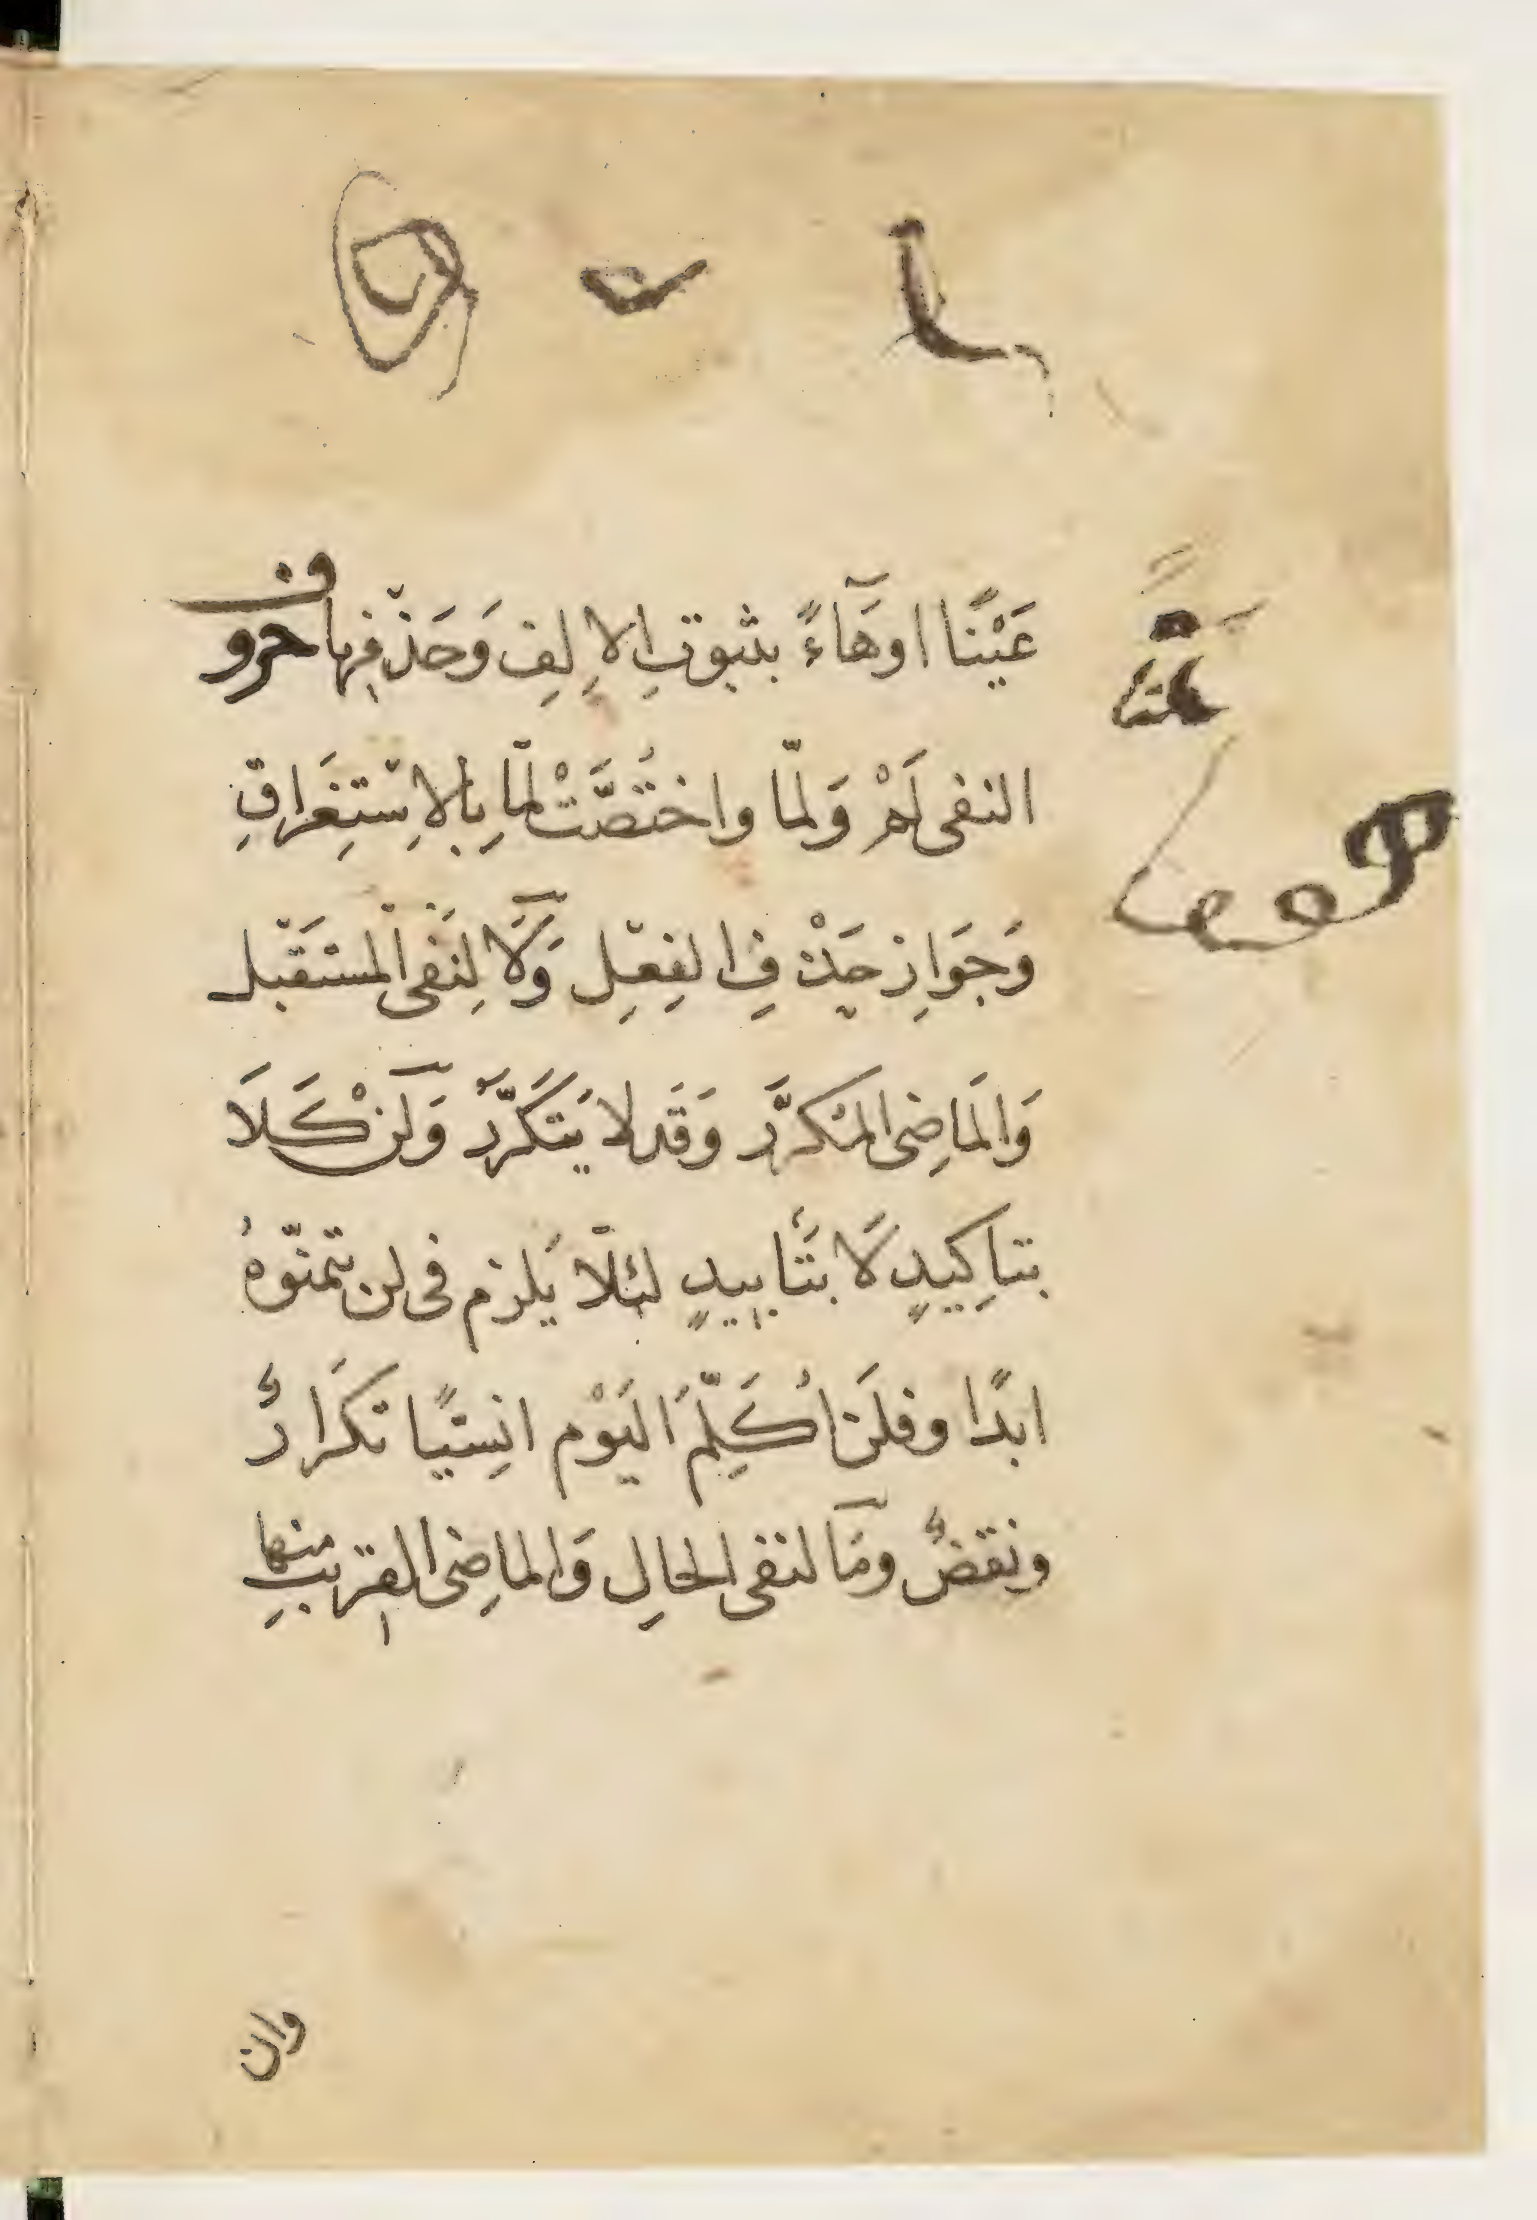 عَيْنًا اوهَآءً بثبوتِ الاِلِفِ وَحَذْفِها حروف
النفى لَمْ وَلمّا واختُصَّتْ لمّا بِالاِسْتِغَراقِ
وَجَوَازِ حَذْفِ الفِعْلِ وَلَآ لِنَفىِ المستَقْبل
وَالمَاضِى المتكرَّر وَقَد لا يَتكَرَّرُ وَلَنْ كَلَا
بتاكِيدٍ لَا بتَأبيدٍ لئلّا يَلزم فى لن يتمنّوهُ
ابدًا وفلَن اُكَلِّمَ اليَوْم انِسيًّا تكَرَارٌ
ونقضٌ ومَآ لنفى الحالِ وَالماضِى القرِيبِ منها
وان